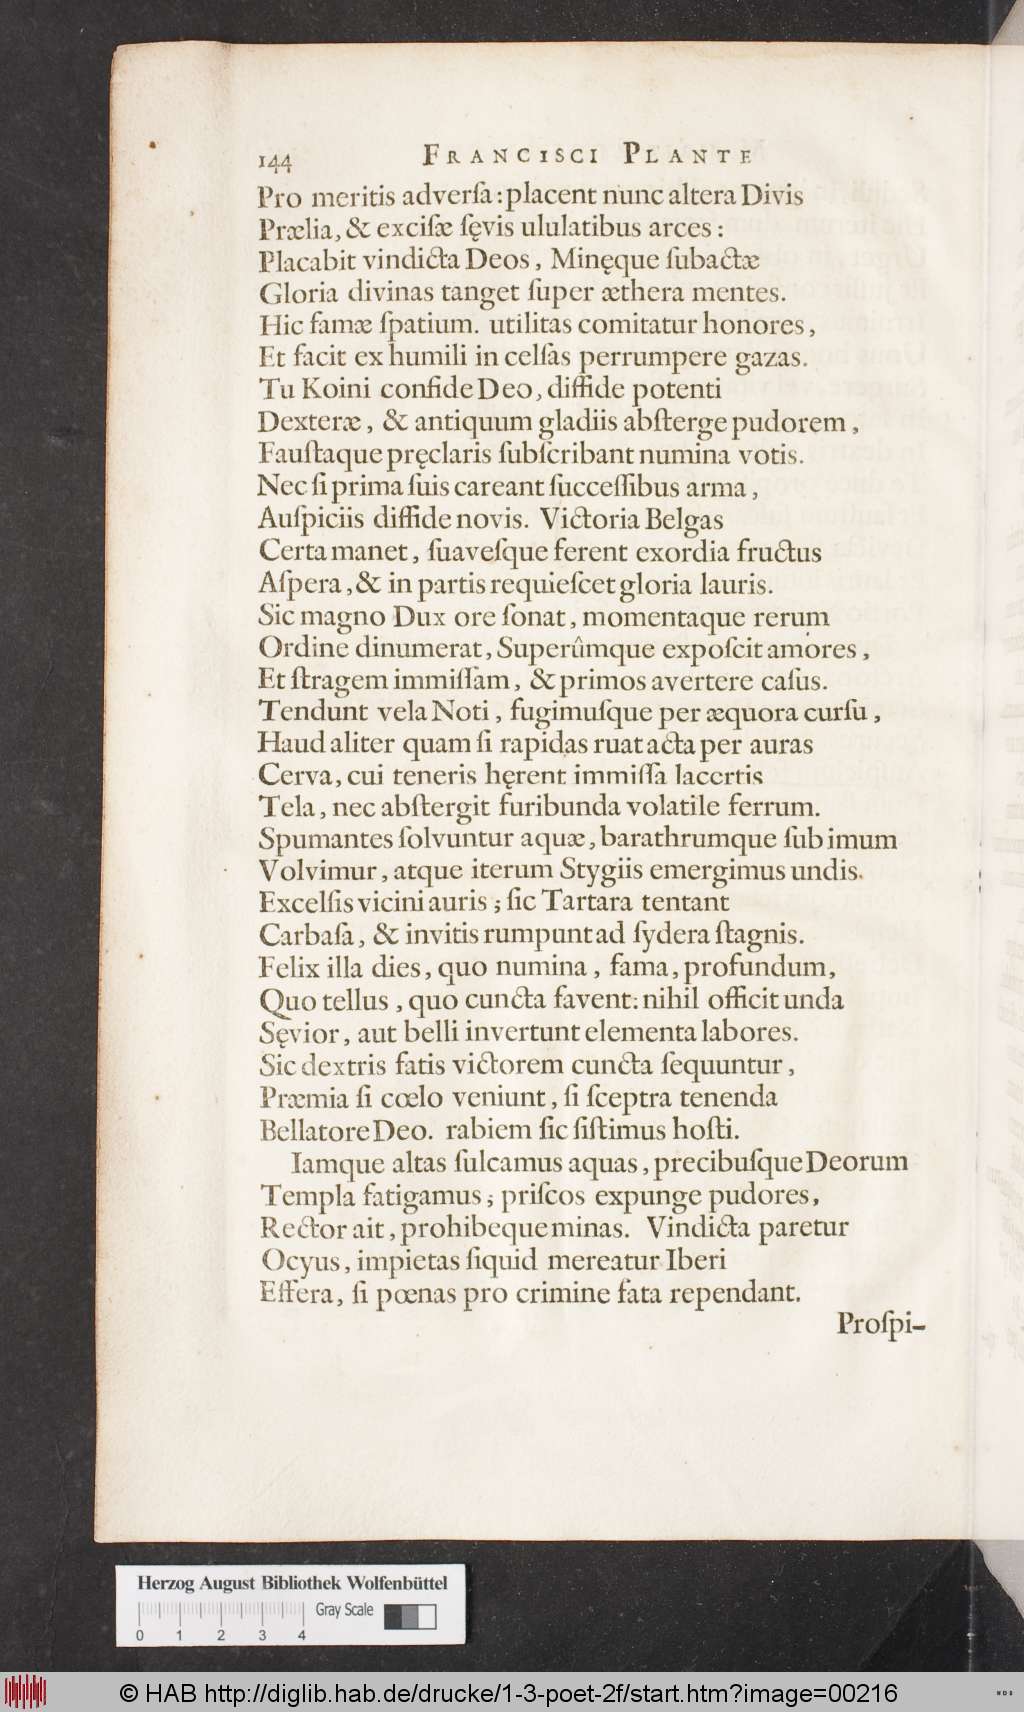 144 FRANCISCI PLANTE
Pro meritis adverſa: placent nunc altera Divis
Prælia, & exciſæ ſęvis ululatibus arces:
Placabit vindicta Deos, Minęque ſubactæ
Gloria divinas tanget ſuper æthera mentes.
Hic famæ ſpatium. utilitas comitatur honores,
Et facit ex humili in celſas perrumpere gazas.
Tu Koini confide Deo, diffide potenti
Dexteræ, & antiquum gladiis abſterge pudorem,
Fauſtaque pręclaris ſubſcribant numina votis.
Nec ſi prima ſuis careant ſucceſſibus arma,
Auſpiciis diffide novis. Victoria Belgas
Certa manet, ſuaveſque ferent exordia fructus
Aſpera, & in partis requieſcet gloria lauris.
Sic magno Dux ore ſonat, momentaque rerum
Ordine dinumerat, Superûmque expoſcit amores,
Et ſtragem immiſſam, & primos avertere caſus.
Tendunt vela Noti, fugimuſque per æquora curſu,
Haud aliter quam ſi rapidas ruat acta per auras
Cerva, cui teneris hęrent immiſſa lacertis
Tela, nec abſtergit furibunda volatile ferrum.
Spumantes ſolvuntur aquæ, barathrumque ſub imum
Volvimur, atque iterum Stygiis emergimus undis.
Excelſis vicini auris; ſic Tartara tentant
Carbaſa, & invitis rumpunt ad ſydera ſtagnis.
Felix illa dies, quo numina, fama, profundum,
Quo tellus, quo cuncta favent: nihil officit unda
Sęvior, aut belli invertunt elementa labores.
Sic dextris fatis victorem cuncta ſequuntur,
Præmia ſi cœlo veniunt, ſi ſceptra tenenda
Bellatore Deo. rabiem ſic ſiſtimus hoſti.
Iamque altas ſulcamus aquas, precibuſque Deorum
Templa fatigamus; priſcos expunge pudores,
Rector ait, prohibeque minas. Vindicta paretur
Ocyus, impietas ſiquid mereatur Iberi
Effera, ſi pœnas pro crimine fata rependant.
Proſpi-
Herzog August Bibliothek Wolfenbüttel
Gray Scale
0 1 2 3 4
© HAB http://diglib.hab.de/drucke/1-3-poet-2f/start.htm?image=00216